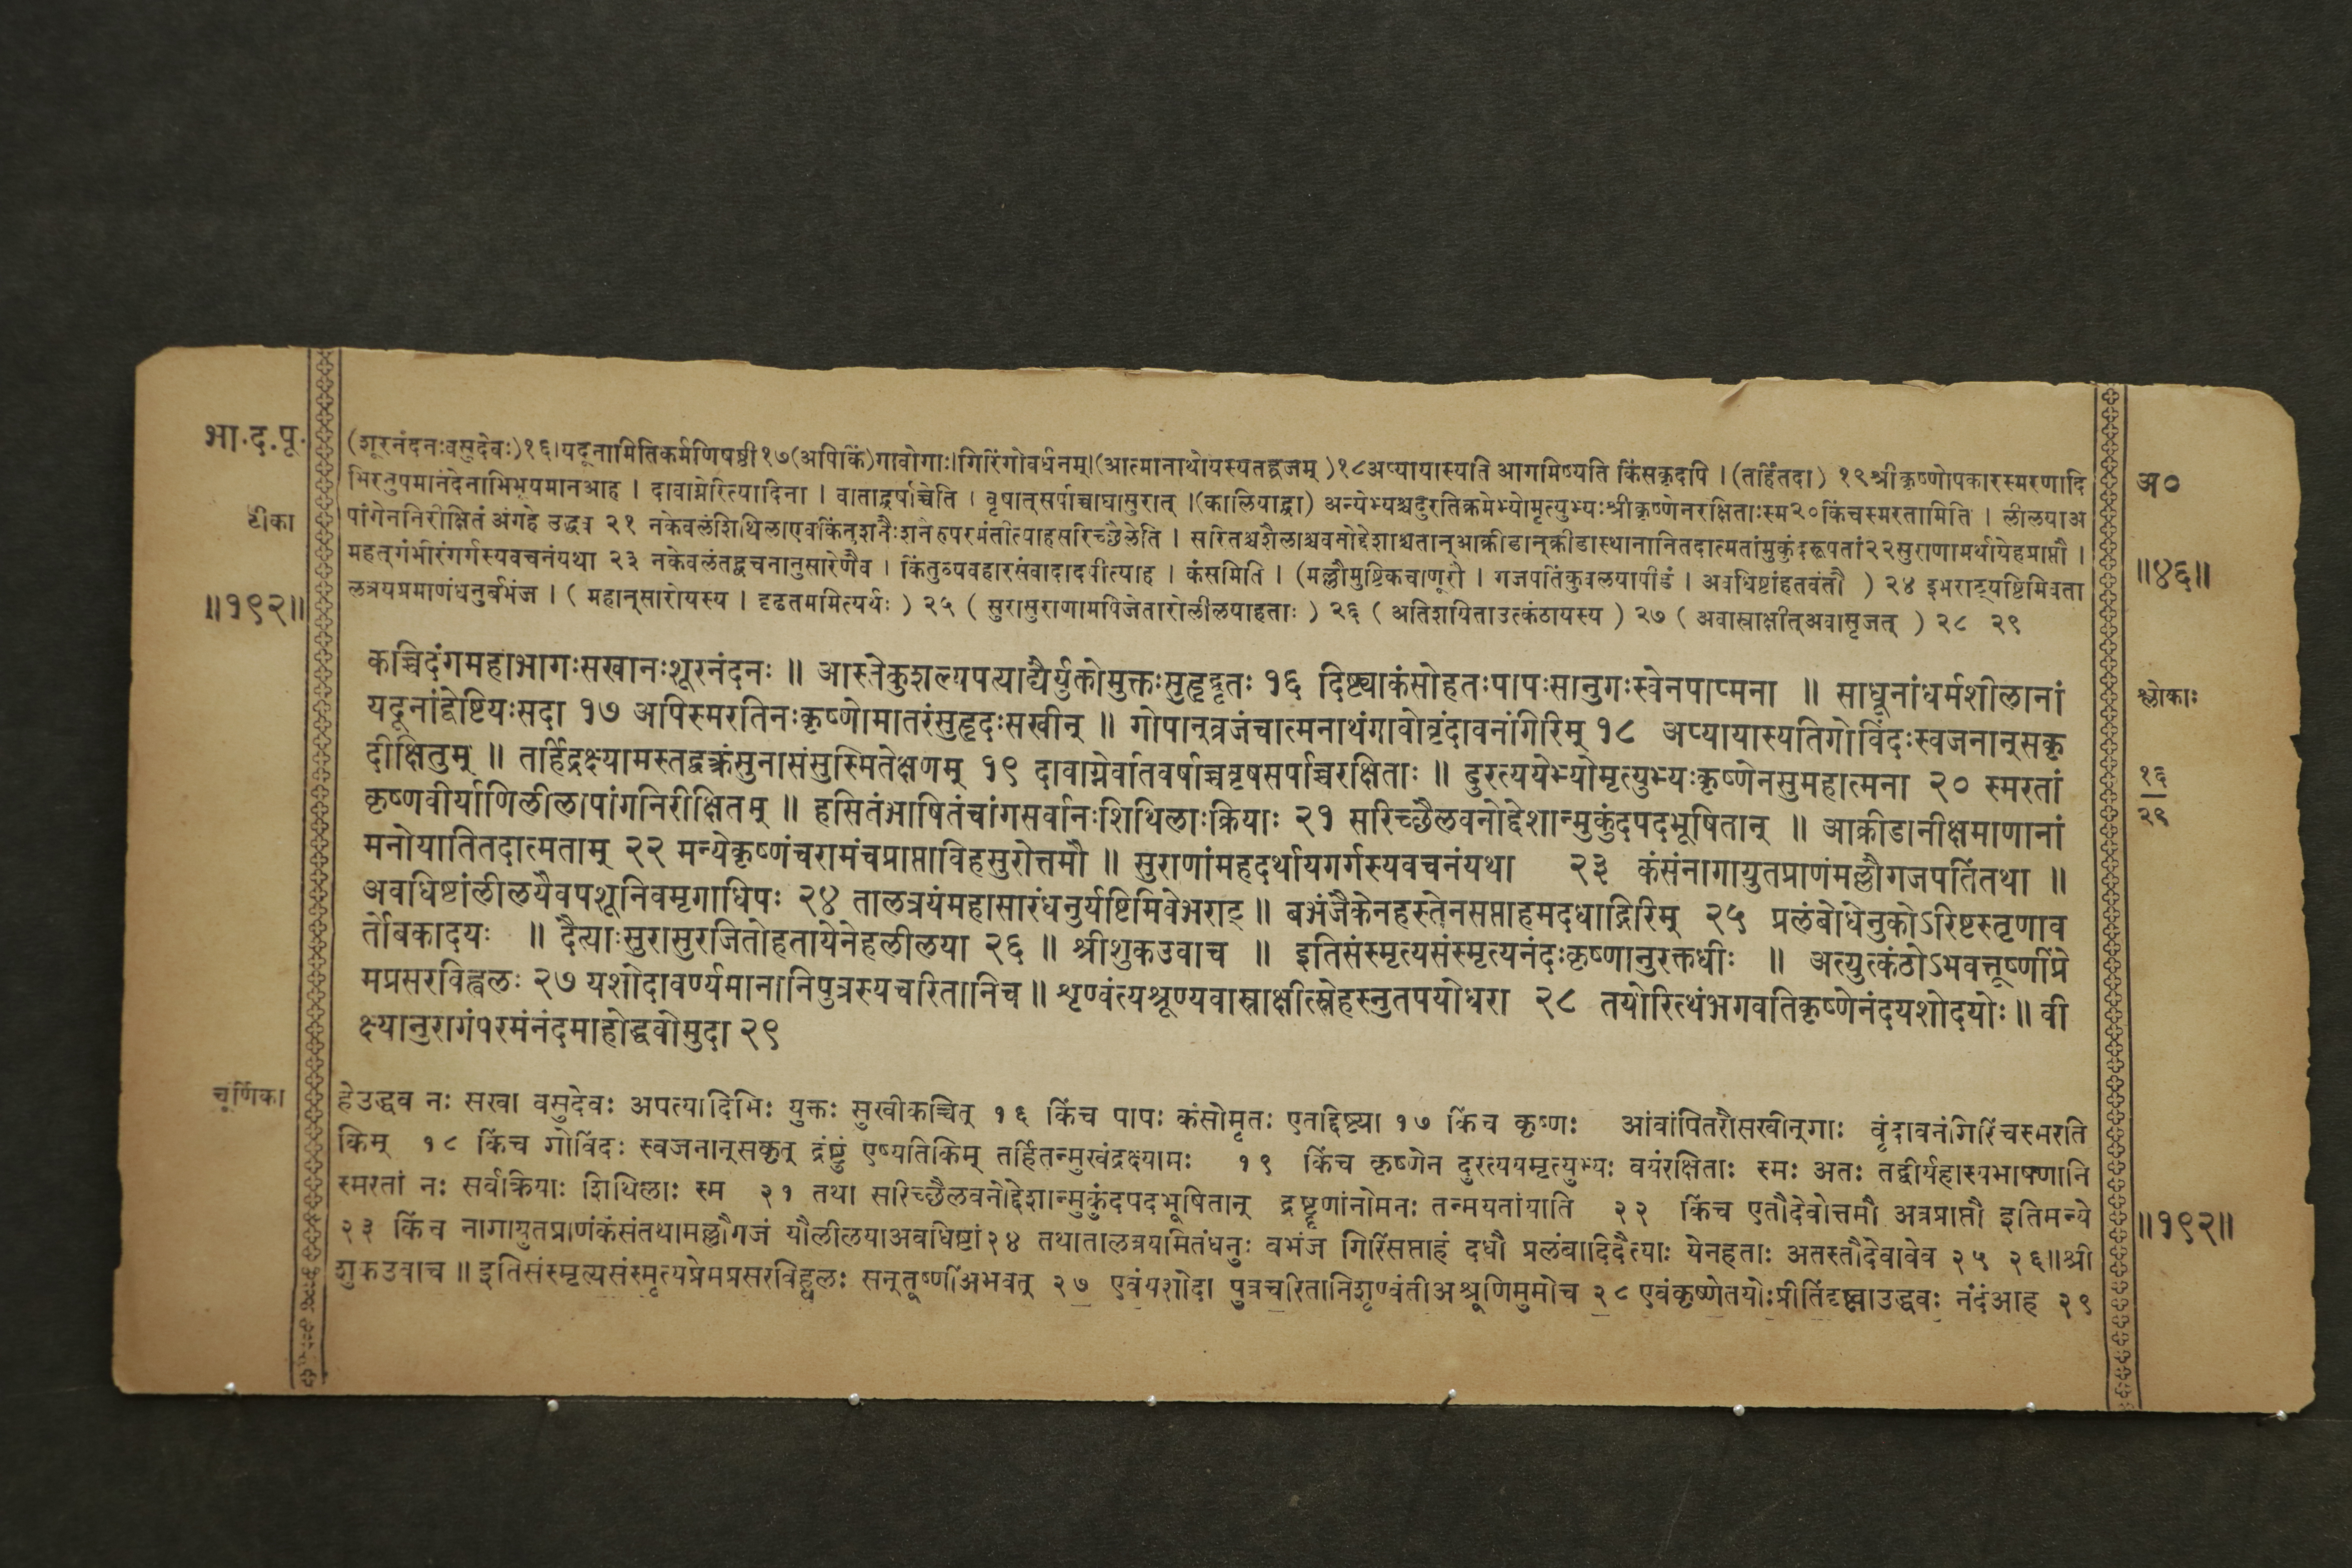 भा.द.पू.
टीका
॥१९२॥
(शूरनंदनःवसुदेवः)१६।यदूनामितिकर्मणिषष्ठी१७(अपिकिं)गावोगाः।गिरिंगोवर्धनम्।(आत्मानाथोयस्यतद्व्रजम्)१८अप्यायास्यति आगमिष्यति किंसकृदपि । (तर्हितदा) १९श्रीकृष्णोपकारस्मरणादि
भिरनुपमानंदेनाभिभूयमानआह । दावाग्नेरित्यादिना । वाताद्वर्षाच्चेति । वृषात्सर्पाच्चाघासुरात् ।(कालियाद्वा) अन्येभ्यश्चदुरतिक्रमेभ्योमृत्युभ्यःश्रीकृष्णेनरक्षिताःस्म२०किंचस्मरतामिति । लीलयाअ
पांगेननिरीक्षितं अंगहे उद्धव २१ नकेवलंशिथिलाएवकिंतुशनैःशनैरुपरमंतीत्याहसरिच्छैलेति । सरितश्चशैलाश्चवनोद्देशाश्चतान्आक्रीडान्क्रीडास्थानानितदात्मतांमुकुंदरूपतां२२सुराणामर्थायेहप्राप्तौ ।
महत्गंभीरंगर्गस्यवचनंयथा २३ नकेवलंतद्वचनानुसारेणैव । किंतुव्यवहारसंवादादवीत्याह । कंसमिति । (मल्लौमुष्टिकचाणूरौ । गजपतिंकुवलयापीडं । अवधिष्टांहतवंतौ ) २४ इभराट्यष्टिमिवता
लत्रयप्रमाणंधनुर्बभंज । ( महान्सारोयस्य । दृढतममित्यर्थः ) २५ ( सुरासुराणामपिजेतारोलीलयाहताः ) २६ ( अतिशयिताउत्कंठायस्य ) २७ ( अवास्राक्षीत्अवासृजत् ) २८ २९
अ०
॥४६॥
कच्चिदंगमहाभागःसखानःशूरनंदनः ॥ आस्तेकुशल्यपत्याद्यैर्युक्तोमुक्तःसुहृद्वृतः १६ दिष्ट्याकंसोहतःपापःसानुगःस्वेनपाप्मना ॥ साधूनांधर्मशीलानां
यदूनांद्वेष्टियःसदा १७ अपिस्मरतिनःकृष्णोमातरंसुहृदःसखीन् ॥ गोपान्व्रजंचात्मनाथंगावोवृंदावनंगिरिम् १८ अप्यायास्यतिगोविंदःस्वजनान्सकृ
दीक्षितुम् ॥ तर्हिद्रक्ष्यामस्तद्वक्त्रंसुनासंसुस्मितेक्षणम् १९ दावाग्नेर्वातवर्षाच्चवृषसर्पाच्चरक्षिताः ॥ दुरत्ययेभ्योमृत्युभ्यःकृष्णेनसुमहात्मना २० स्मरतां
कृष्णवीर्याणिलीलापांगनिरीक्षितम् ॥ हसितंभाषितंचांगसर्वानःशिथिलाःक्रियाः २१ सरिच्छैलवनोद्देशान्मुकुंदपदभूषितान् ॥ आक्रीडानीक्षमाणानां
मनोयातितदात्मताम् २२ मन्येकृष्णंचरामंचप्राप्ताविहसुरोत्तमौ ॥ सुराणांमहदर्थायगर्गस्यवचनंयथा २३ कंसंनागायुतप्राणंमल्लौगजपतिंतथा ॥
अवधिष्टांलीलयैवपशूनिवमृगाधिपः २४ तालत्रयंमहासारंधनुर्यष्टिमिवेभराट् ॥ बभंजैकेनहस्तेनसप्ताहमदधाद्गिरिम् २५ प्रलंबोधेनुकोऽरिष्टस्तृणाव
र्तोबकादयः ॥ दैत्याःसुरासुरजितोहतायेनेहलीलया २६ ॥ श्रीशुकउवाच ॥ इतिसंस्मृत्यसंस्मृत्यनंदःकृष्णानुरक्तधीः ॥ अत्युत्कंठोऽभवत्तूष्णींप्रे
मप्रसरविह्वलः २७ यशोदावर्ण्यमानानिपुत्रस्यचरितानिच ॥ शृण्वंत्यश्रूण्यवास्राक्षीत्स्नेहस्नुतपयोधरा २८ तयोरित्थंभगवतिकृष्णेनंदयशोदयोः ॥ वी
क्ष्यानुरागंपरमंनंदमाहोद्धवोमुदा २९
श्लोकाः
१६
२९
चूर्णिका
हेउद्धव नः सखा वसुदेवः अपत्यादिभिः युक्तः सुखीकच्चित् १६ किंच पापः कंसोमृतः एतद्दिष्ट्या १७ किंच कृष्णः आंवांपितरौसखीन्गाः वृंदावनंगिरिंचस्मरति
किम् १८ किंच गोविंदः स्वजनान्सकृत् द्रष्टुं एष्यतिकिम् तर्हितन्मुखंद्रक्ष्यामः १९ किंच कृष्णेन दुरत्ययमृत्युभ्यः वयंरक्षिताः स्मः अतः तद्वीर्यहास्यभाषणानि
स्मरतां नः सर्वक्रियाः शिथिलाः स्म २१ तथा सरिच्छैलवनोद्देशान्मुकुंदपदभूषितान् द्रष्टॄणांनोमनः तन्मयतांयाति २२ किंच एतौदेवोत्तमौ अत्रप्राप्तौ इतिमन्ये
२३ किंच नागायुतप्राणंकंसंतथामल्लौगजं यौलीलयाअवधिष्टां२४ तथातालत्रयमितंधनुः बभंज गिरिंसप्ताहं दधौ प्रलंबादिदैत्याः येनहताः अतस्तौदेवावेव २५ २६॥श्री
शुकउवाच ॥ इतिसंस्मृत्यसंस्मृत्यप्रेमप्रसरविह्वलः सन्तूष्णींअभवत् २७ एवंयशोदा पुत्रचरितानिशृण्वंतीअश्रूणिमुमोच २८ एवंकृष्णेतयोःप्रीतिंदृष्ट्वाउद्धवः नंदंआह २९
॥१९२॥